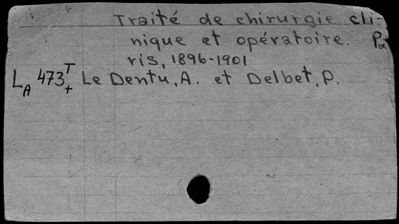 Traité de chirurgie cli-
nique et opératoire. Pa
ris, 1896-1901
LA 473 T+ Le Dentu, A. et Delbet, P.